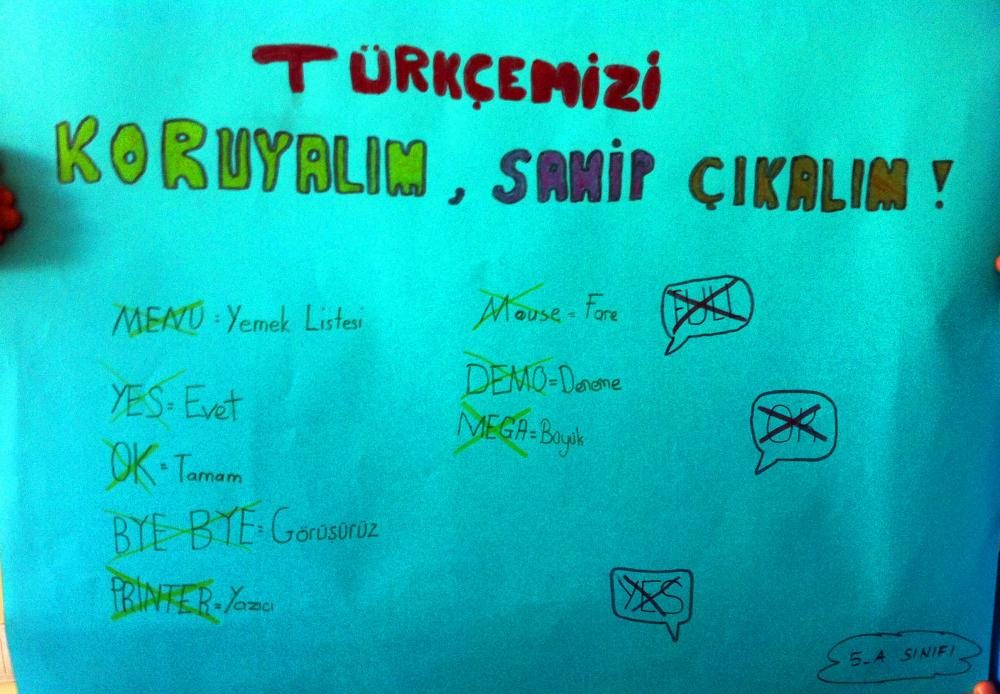 TÜRKÇEMİZİ
KORUYALIM, SAHİP ÇIKALIM!
MENU : Yemek Listesi
YES = Evet
OK = Tamam
BYE BYE = Görüşürüz
PRİNTER = Yazıcı
Mause = Fare
DEMO = Deneme
MEGA = Büyük
FULL
OK
YES
5-A SINIFI